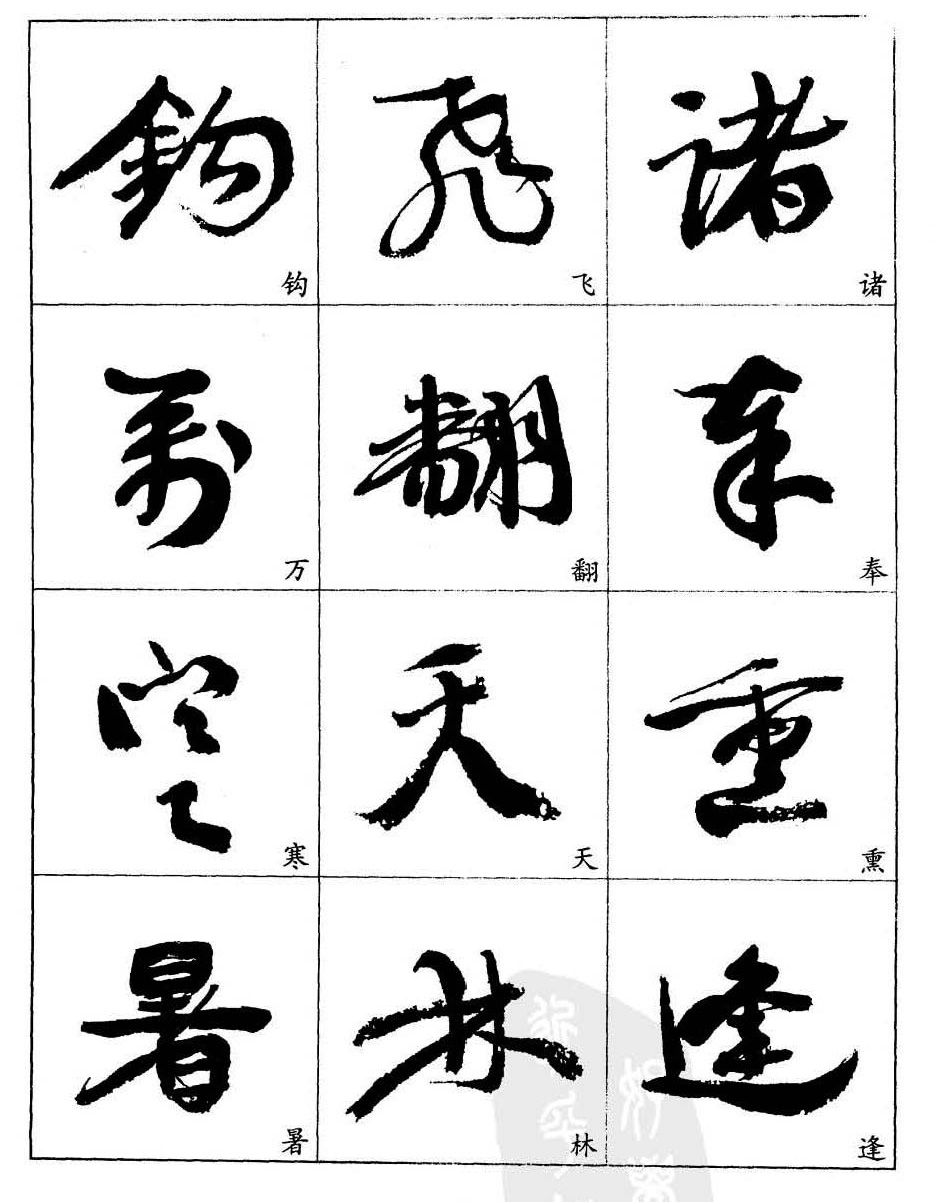 諸
诸
奉
奉
熏
熏
逢
逢
飛
飞
翻
翻
天
天
林
林
鈎
钩
萬
万
寒
寒
暑
暑